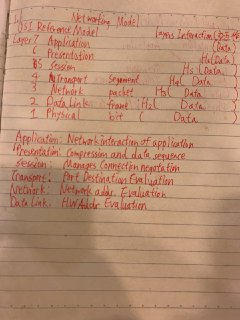 Networking Model
OSI Reference Model Layers Interaction
Layer 7 Application (Data)
6 Presentation Hs(Data)
5 Session Hs(Data)
4 Transport segment H4( Data
3 Network packet H3( Data )
2 Data Link frame H2( Data )
1 Physical bit ( Data )
Application: Network interaction of application
Presentation: Compression and data sequence
Session: Manages Connection negotation
Transport: Port Destination Evaluation
Network: Network addr. Evaluation
Data Link: HWAddr Evaluation